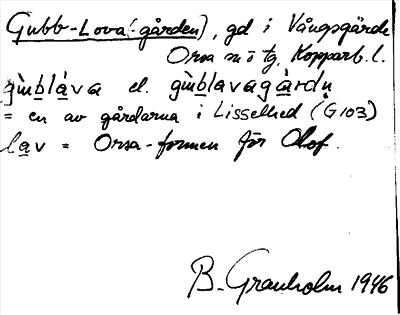 Gubb-Lova(-gården), gd i Vångsgärde
Orsa sn o tg, Kopparb. l.
gùbláva el. gùblavagàrdn̥
= en av gårdarna i Lisselhed (G103)
lav = Orsa-formen för Olof.
B. Granholm 1946